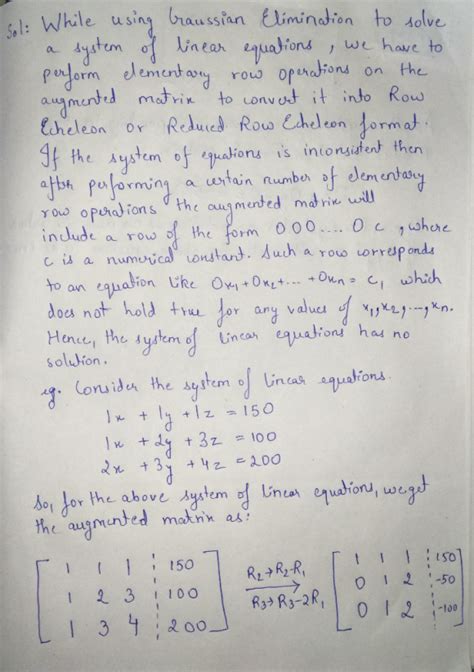 Sol: While using Gaussian Elimination to solve
a system of linear equations, we have to
perform elementary row operations on the
augmented matrix to convert it into Row
Echeleon or Reduced Row Echeleon format.
If the system of equations is inconsistent then
after performing a certain number of elementary
row operations the augmented matrix will
include a row of the form 0 0 0 .... 0 c, where
c is a numerical constant. Such a row corresponds
to an equation like 0x₁+0x₂+... +0xₙ = c, which
does not hold true for any values of x₁,x₂,...,xₙ.
Hence, the system of linear equations has no
solution.
eg. Consider the system of linear equations.
1x + 1y + 1z = 150
1x + 2y + 3z = 100
2x + 3y + 4z = 200
So, for the above system of linear equations, we get
the augmented matrix as:
1 1 1 150 R₂→R₂-R₁ 1 1 1 150
1 2 3 100 R₃→R₃-2R₁ 0 1 2 -50
1 3 4 200 0 1 2 -100